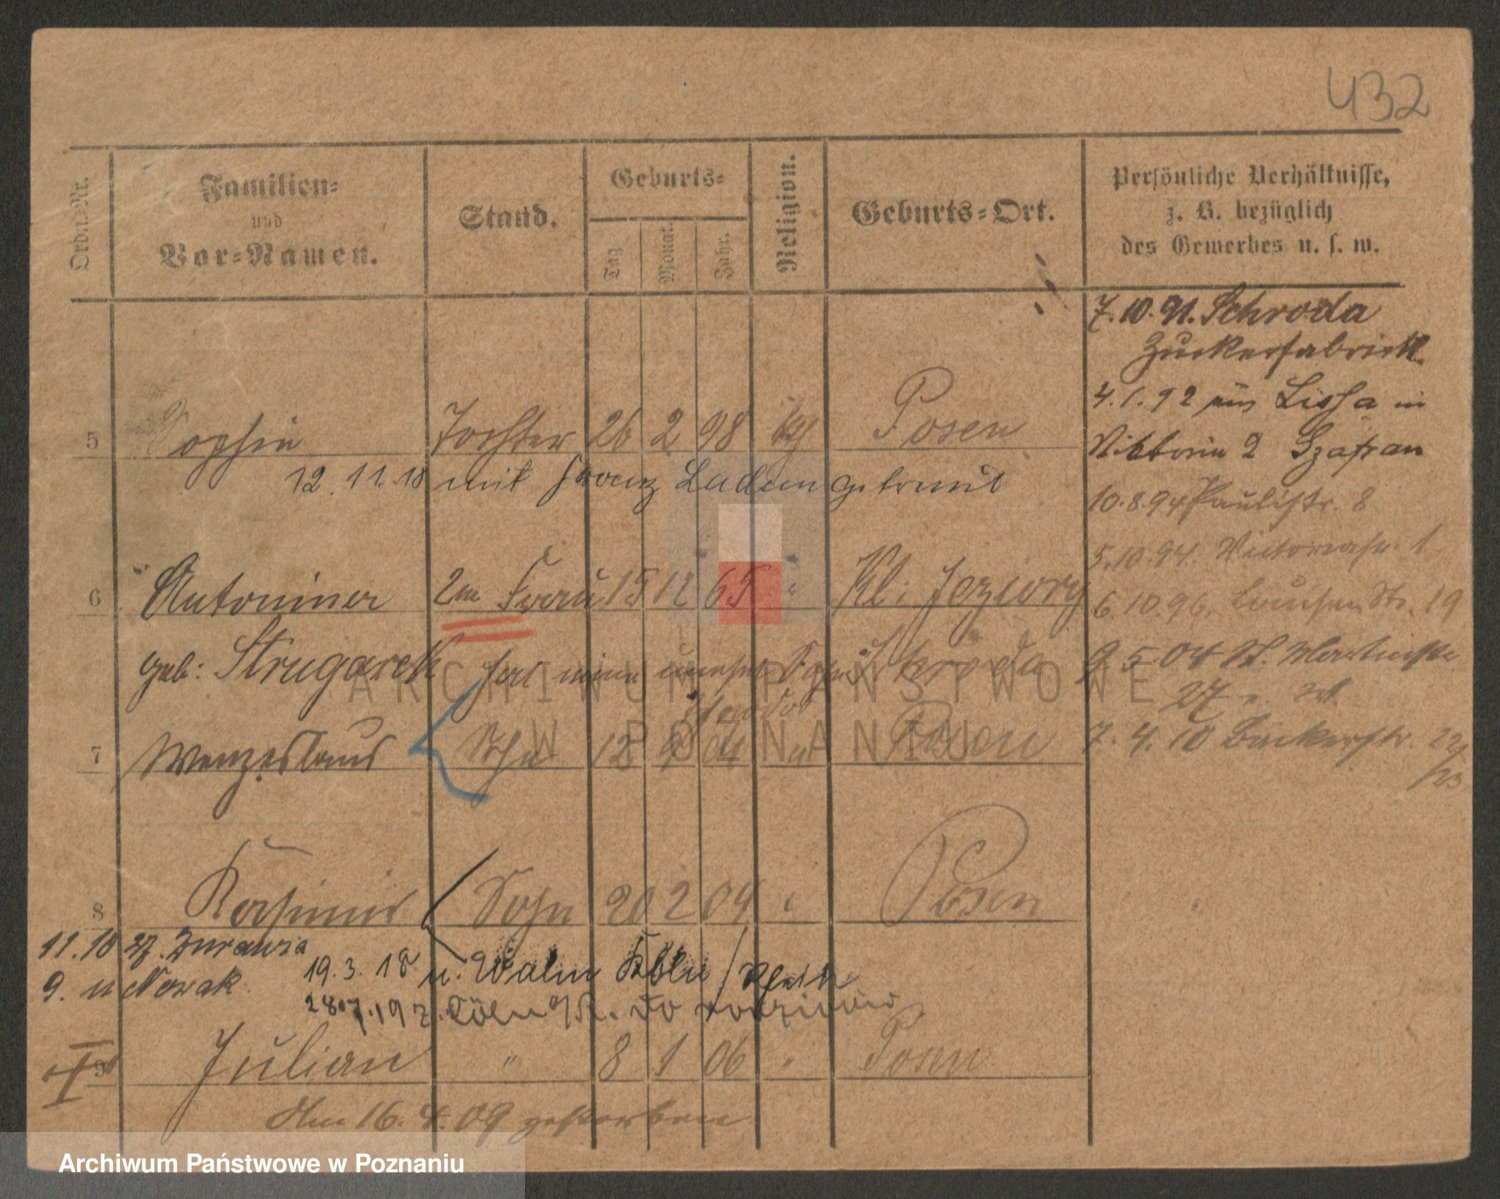 432
Ordn.-Nr.
Familien-
und
Vor-Namen.
Stand.
Geburts-
Tag
Monat.
Jahr.
Religion.
Geburts-Ort.
Persönliche Verhältnisse,
z. B. bezüglich
des Gewerbes u. s. w.
7.10.91. Schroda
Zuckerfabrick
4.1.92 aus Lissa in
Viktoria 2 Szafran
10.8.94 Paulistr. 8
5.10.94. Victoriastr. 1
6.10.96 Louisen Str. 19
9.5.04 St. Martinstr.
27
7.4.10 Bäckerstr. 22/23
5 Sophie Tochter 26 2 98 kt Posen
12.11.18 mit Franz getraut
6 Antonina 2te Frau 15 12 65 " Kl: Jeziory
geb: Strugarek Schroda
7 Wenzeslaus Sohn 12 9 04 " Posen
8 Kasimir Sohn 20 2 04 " Posen
11.18 z. Zurawia
9. u Nowak. 19.3.18 n. Köln
28.7.19 z. Köln a/R. do rodziców
9 Julian " 8 1 06 " Posen
Am 16.4.09 gestorben
ARCHIWUM PAŃSTWOWE
W POZNANIU
Archiwum Państwowe w Poznaniu